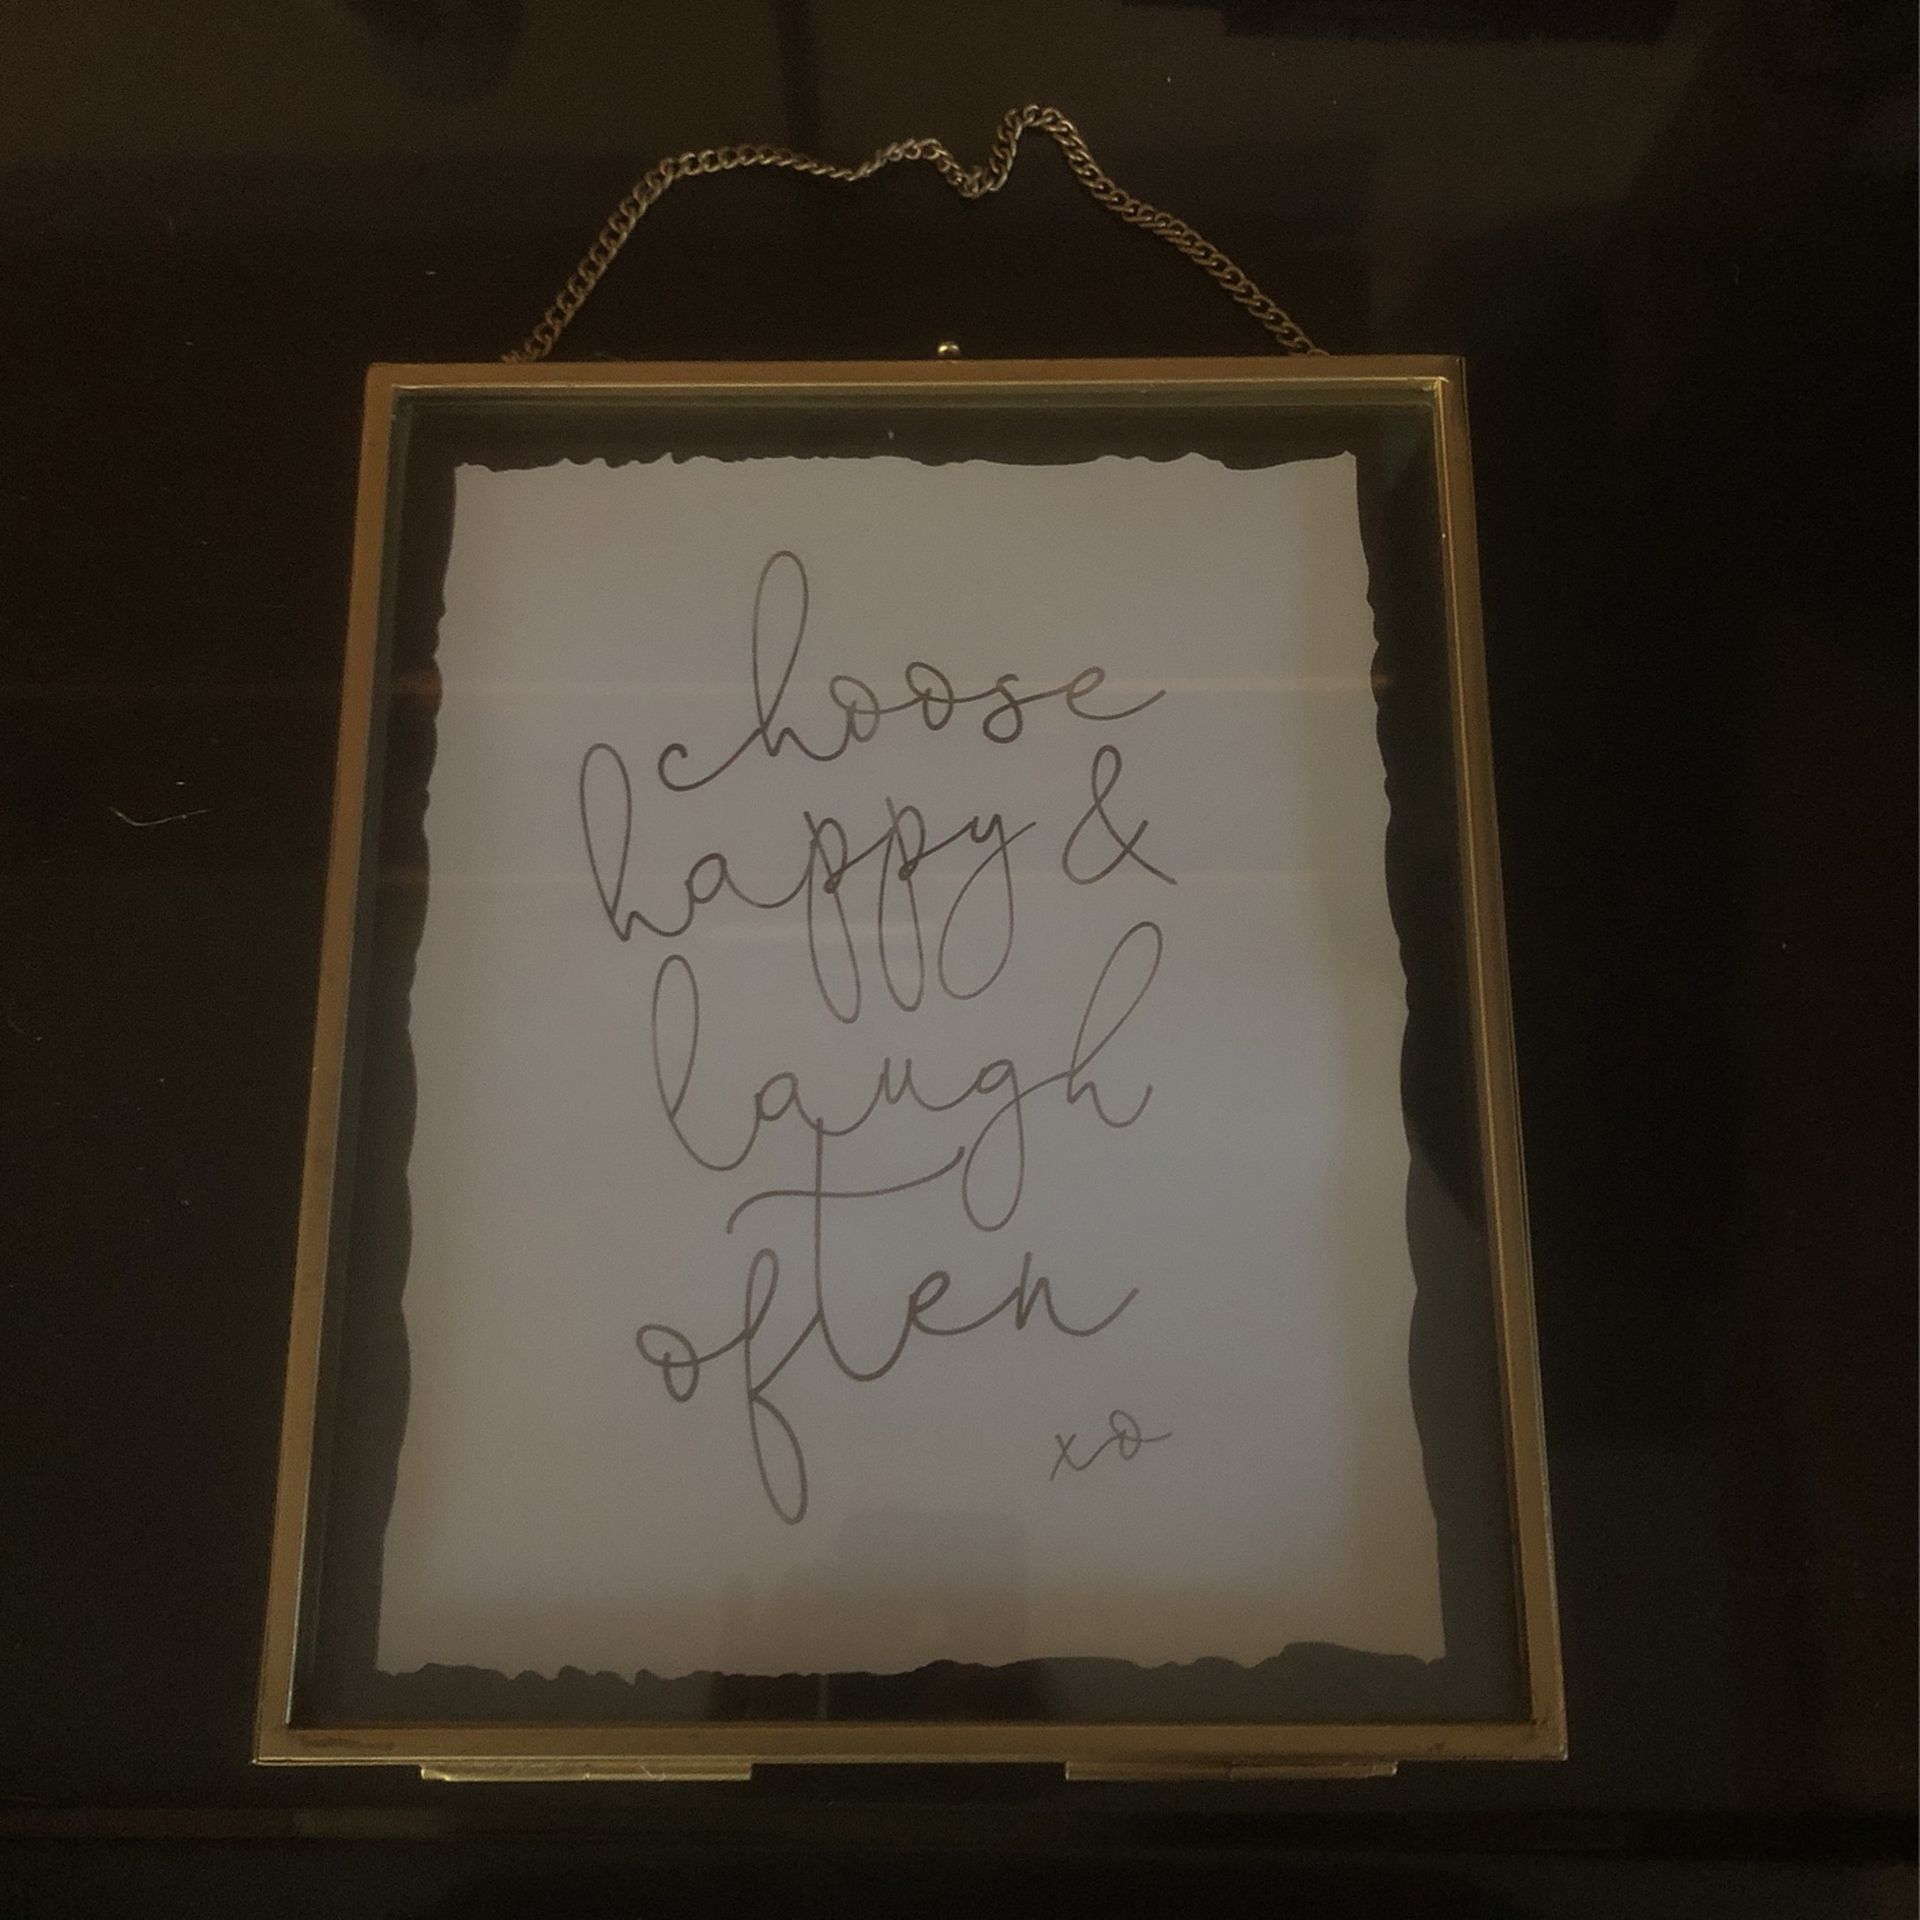 choose
happy &
laugh
often
xo